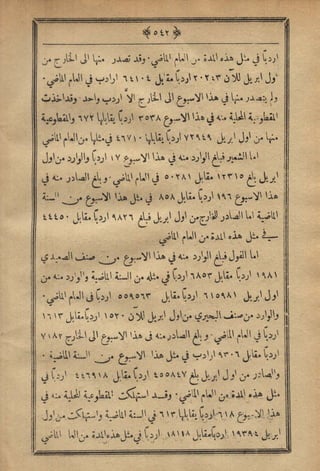 ﴿٥٤٢﴾
اردبًا في مثل هذه المدة من العام الماضي. وقد تصدر منها الى الخارج من
اول ابريل للآن ٢٠٢٤٣ اردبًا مقابل ٦٤١٠٤ ارادب في العام الماضي.
ولم يتصدر منها في هذا الاسبوع الى الخارج الا اردب واحد. وقد اخذت
المقطوعية المحلية منه في هذا الاسبوع ٣٥٣٨ اردبًا يقابلها ٦٧٢ والمقطوعية
منها من اول ابريل ٧٢٩٤٩ اردبًا يقابلها ٤٦٧١٠ في مثلها من العام الماضي
اما الشعير فبلغ الوارد منه في هذا الاسبوع ١٧ اردبًا والوارد من اول
ابريل بلغ ١٢٣١٥ مقابل ٥٠٢٨١ في العام الماضي. وبلغ الصادر منه في
هذا الاسبوع ١٩٦ اردبًا مقابل ٨٥٨ في مثل هذا الاسبوع من السنة
الماضية اما الصادر للخارج من اول ابريل فبلغ ٩٨٢٦ اردبًا مقابل ٤٤٤٥٠
في مثل هذه المدة من العام الماضي
اما الفول فبلغ الوارد منه في هذا الاسبوع من صنف الصعيدي
١٩٨١ اردبًا مقابل ٦٨٥٣ اردبًا في مثله من السنة الماضية والوارد منه من
اول ابريل ٦١٥٩٨١ اردبًا مقابل ٥٥٩٥٦٣ اردبًا في العام الماضي.
والوارد من صنف البحيري من اول ابريل للآن ١٥٢٠ اردبًا مقابل ١٦١٣
اردبًا في العام الماضي. وبلغ الصادر منه في هذا الاسبوع الى الخارج ٧١٨٢
اردبًا مقابل ٩٣٠٦ ارادب في مثل هذا الاسبوع من السنة الماضية.
والصادر من اول ابريل بلغ ٤٥٥٨٤٧ اردبًا مقابل ٤٤٦٩١٨ اردبًا في
مثل هذه المدة من العام الماضي. وقد استهلكت المقطوعية المحلية منه في
هذا الاسبوع ٦١٨ اردبًا يقابلها ٦١٣ في السنة الماضية واستهلكت من اول
ابريل ١٩٣٩٤ اردبًا مقابل ١٨١٧٨ اردبًا في مثل هذه المدة من العام الماضي